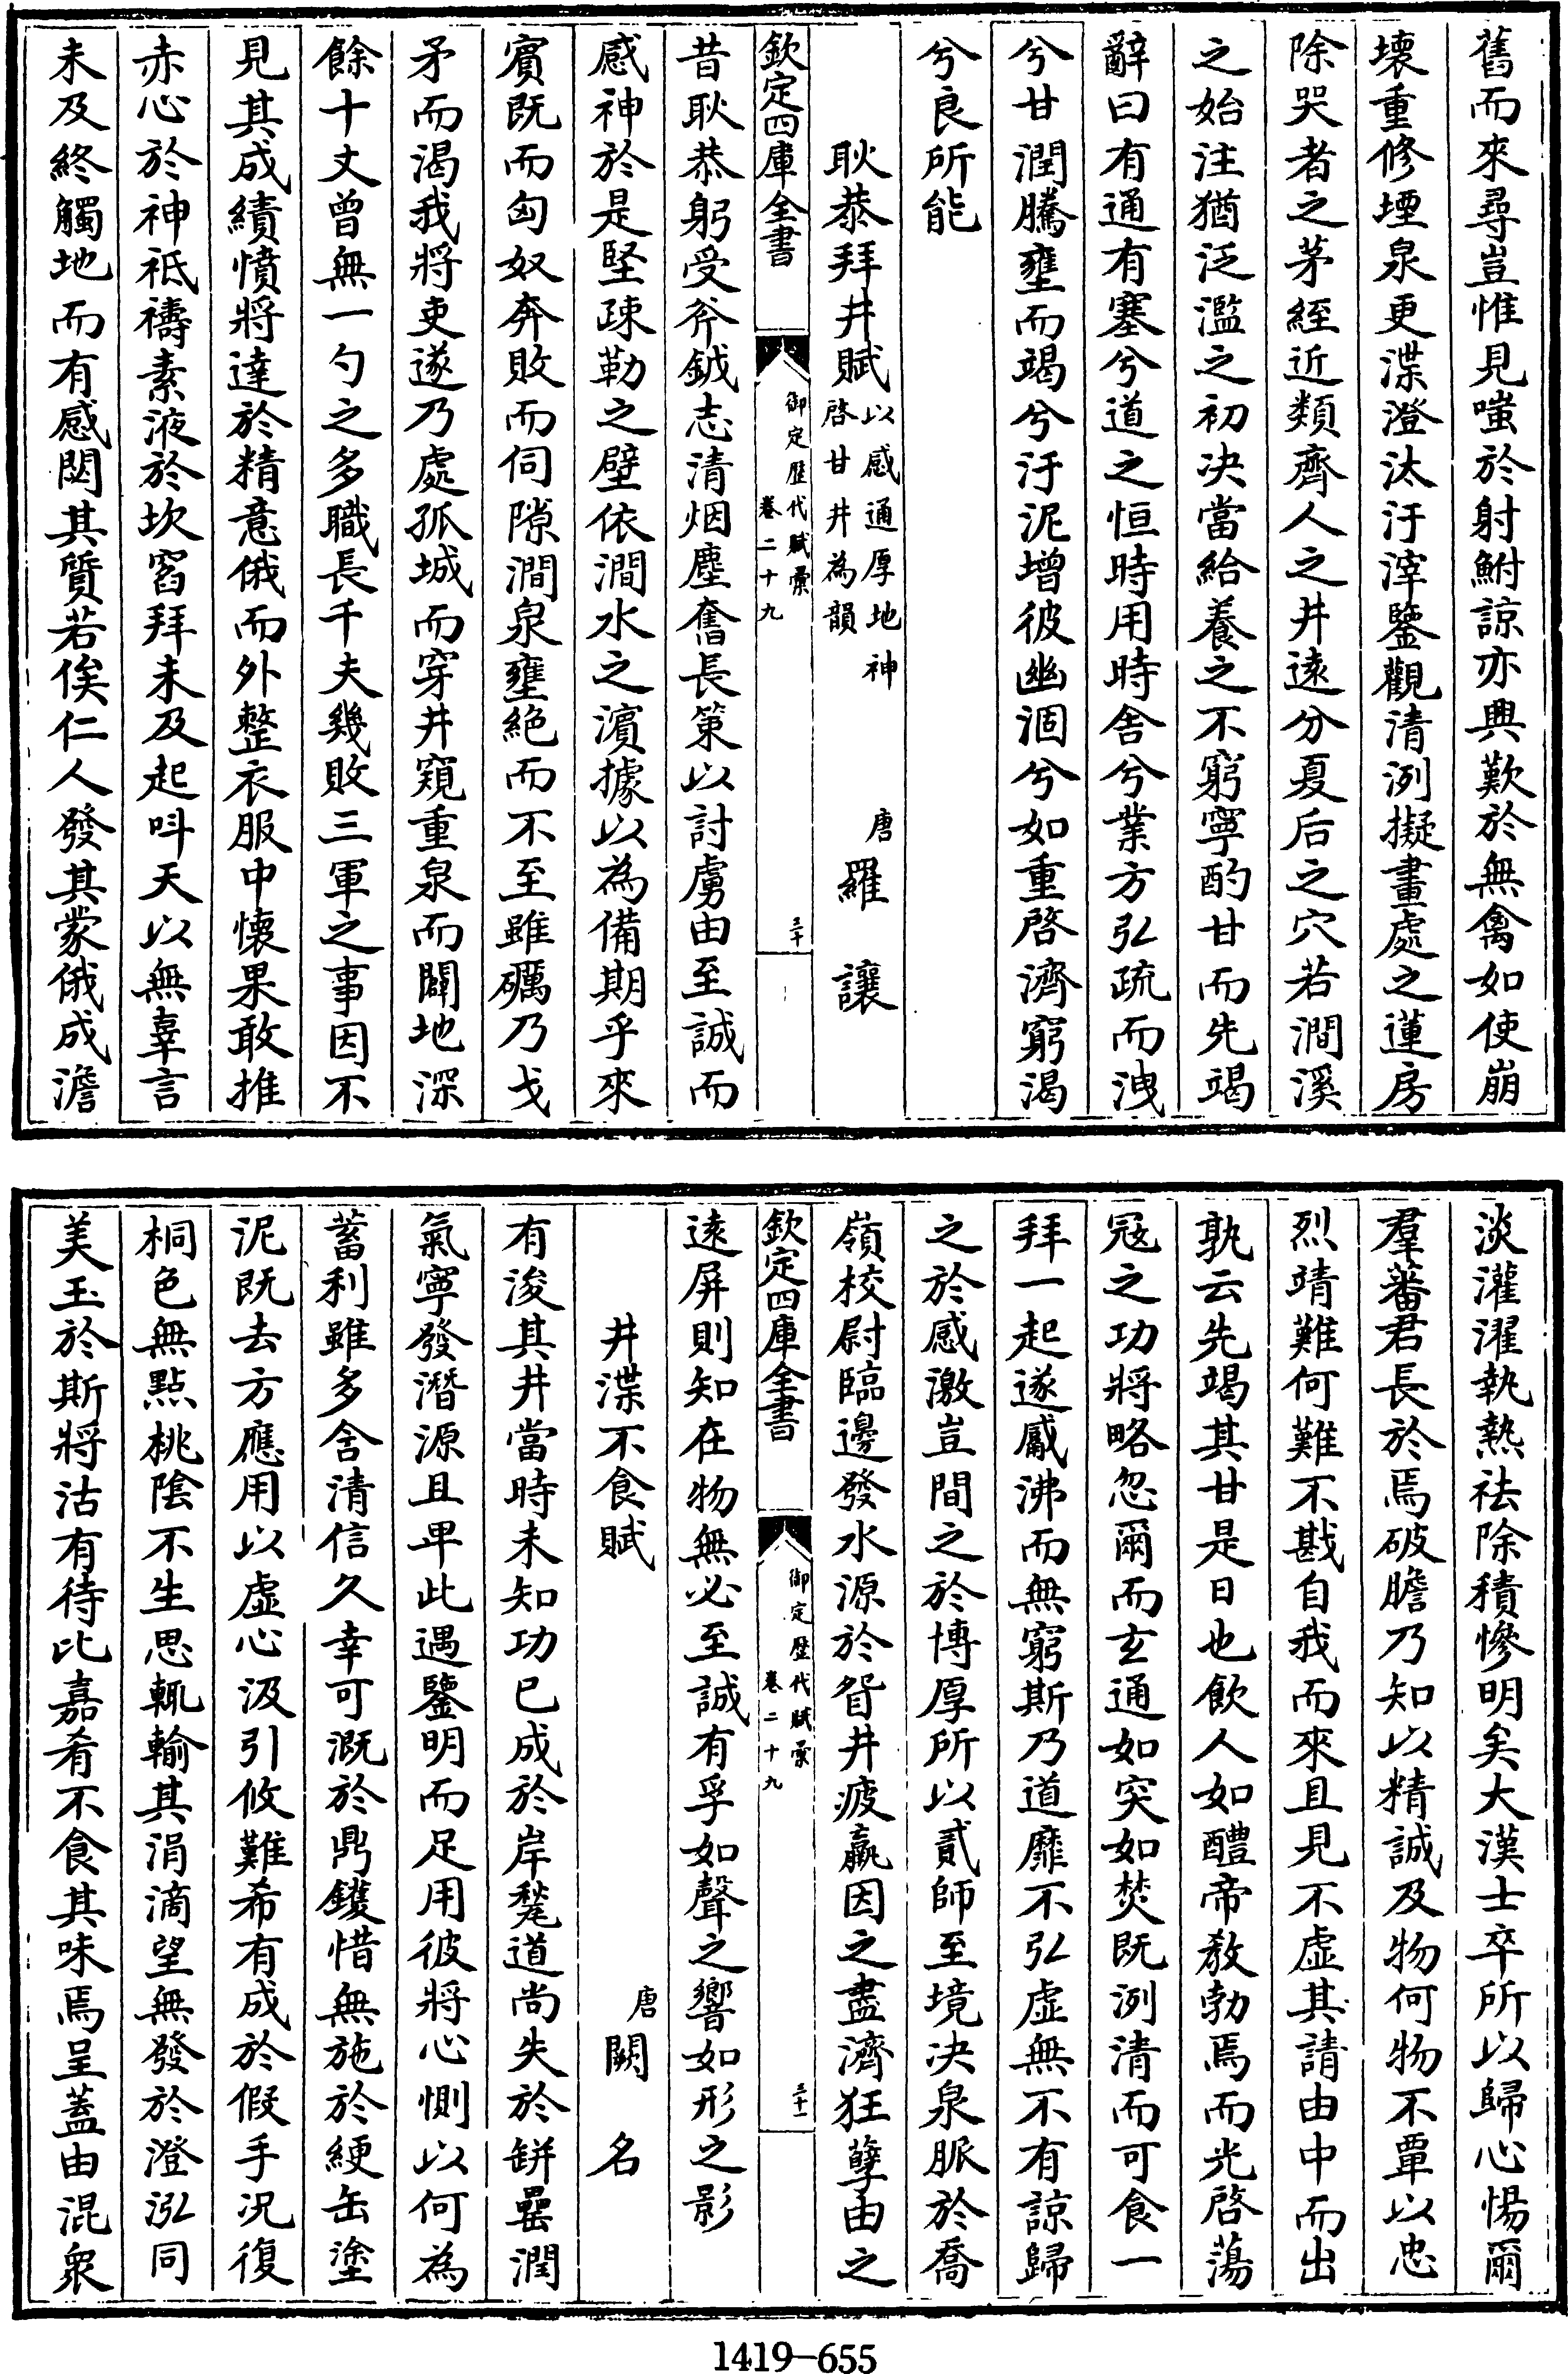 舊而來尋豈惟見嗤於射鮒諒亦興歎於無禽如使崩
壞重修堙泉更渫澄汰汙滓鑒觀清洌擬畫處之蓮房
除哭者之茅絰近類齊人之井遠分夏后之穴若澗溪
之始注猶泛濫之初决當給養之不窮寧酌甘而先竭
辭曰有通有塞兮道之恒時用時舍兮業方弘疏而洩
兮甘潤騰壅而竭兮汙泥增彼幽涸兮如重啓濟窮渴
兮良所能
耿恭拜井賦以感通厚地神啓甘井為韻 唐 羅讓
欽定四庫全書 御定歷代賦彙 卷二十九 三十
昔耿恭躬受斧鉞志清烟塵奮長策以討虜由至誠而
感神於是堅疎勒之壁依澗水之濵據以為備期乎來
賓既而匈奴奔敗而伺隙澗泉壅絶而不至雖礪乃戈
矛而渴我將吏遂乃處孤城而穿井窺重泉而闢地深
餘十丈曾無一勺之多職長千夫幾敗三軍之事因不
見其成績憤將達於精意俄而外整衣服中懐果敢推
赤心於神祇禱素液於坎窞拜未及起呌天以無辜言
未及終觸地而有感閟其質若俟仁人發其蒙俄成澹
淡灌濯執熱祛除積慘明矣大漢士卒所以歸心惕爾
羣蕃君長於焉破膽乃知以精誠及物何物不覃以忠
烈靖難何難不戡自我而來且見不虛其請由中而出
孰云先竭其甘是日也飲人如醴帝敎勃焉而光啓蕩
冦之功將略忽爾而玄通如突如焚既洌清而可食一
拜一起遂觱沸而無窮斯乃道靡不弘虛無不有諒歸
之於感激豈間之於博厚所以貳師至境决泉脈於喬
嶺校尉臨邊發水源於眢井疲羸因之盡濟狂孽由之
欽定四庫全書 御定歷代賦彙 卷二十九 三十一
遠屏則知在物無必至誠有孚如聲之響如形之影
井渫不食賦 唐 闕名
有浚其井當時未知功已成於岸甃道尚失於缾罍潤
氣寧發潛源且卑此遇鑒明而足用彼將心惻以何為
蓄利雖多含清信久幸可溉於鼎鑊惜無施於綆缶塗
泥既去方應用以虛心汲引攸難希有成於假手况復
桐色無點桃陰不生思輒輸其涓滴望無發於澄泓同
美玉於斯將沽有待比嘉肴不食其味焉呈蓋由混衆
1419—655